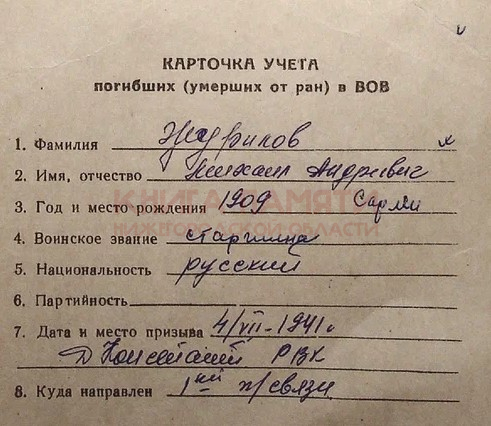 КАРТОЧКА УЧЕТА
погибших (умерших от ран) в ВОВ
1. Фамилия Журилов
2. Имя, отчество Михаил Андреевич
3. Год и место рождения 1909 Сарлей
КНИГА ПАМЯТИ
НИЖЕГОРОДСКОЙ ОБЛАСТИ
4. Воинское звание старшина
5. Национальность русский
6. Партийность
7. Дата и место призыва 4/VII-1941г
Д Константин РВК
8. Куда направлен 1ый п/связи